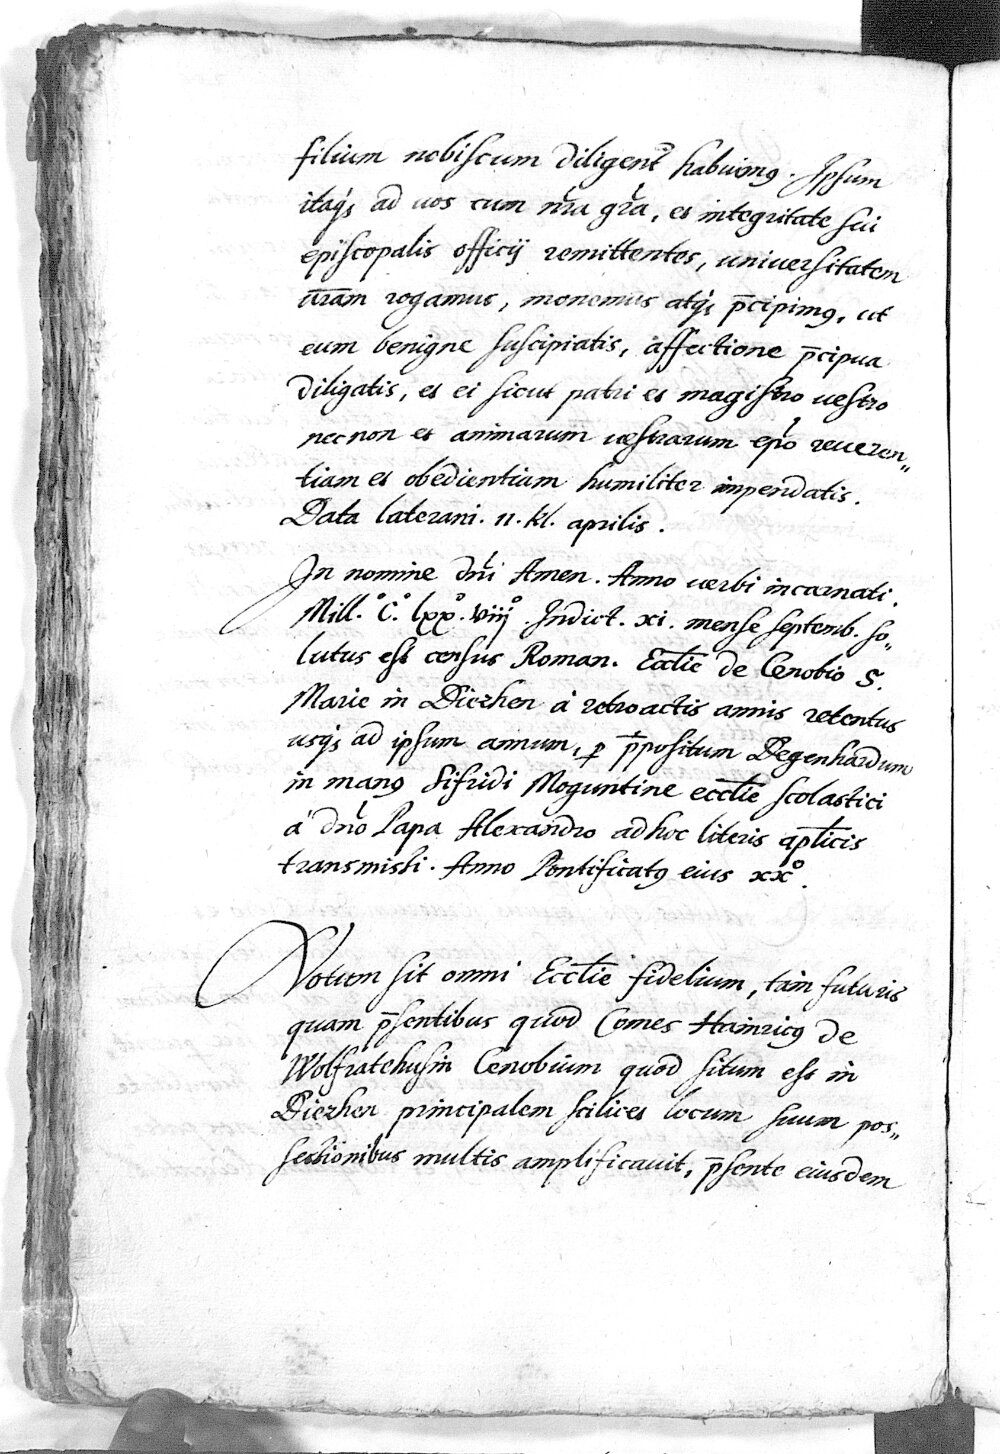 filium nobiscum diligent̓ habuimꝯ. Ipsum
itaqꝫ ad uos cum nr̃a gr̃a, et integritate sui
episcopalis officij remittentes, uniuersitatem
ur̃am rogamus, monemus atqꝫ p̄cipimꝯ, ut
eum benigne suscipiatis, affectione p̄cipua
diligatis, et ei sicut patri et magistro uestro
necnon et animarum uestrarum ep̃o reueren„
tiam et obedientiam humiliter impendatis.
Data laterani. 11. kl. aprilis.
In nomine dñi Amen. Anno uerbi incarnati.
Mill.° C.° lxx.° viij° Indict. xi. mense septemb. so„
lutus est census Roman. Eccl̃ie de Cenobio S.
Marie in Diezhen à retroactis annis retentus
usqꝫ ad ipsum annum, ꝑ p̄positum Degenhardum
in manꝯ Sifridi Moguntine eccl̃ie scolastici
à dño Papa Alexandro ad hoc literis apl̃icis
transmissi. Anno Pontificatꝯ eius xx°.
Notum sit omni Eccl̃ie fidelium, tam futuris
quam p̄sentibus quod Comes Hainricꝯ de
Wolfratehusin Cenobium quod situm est in
Diezhen principalem scilicet locum suum pos„
sessionibus multis amplificauit, p̄sente eiusdem